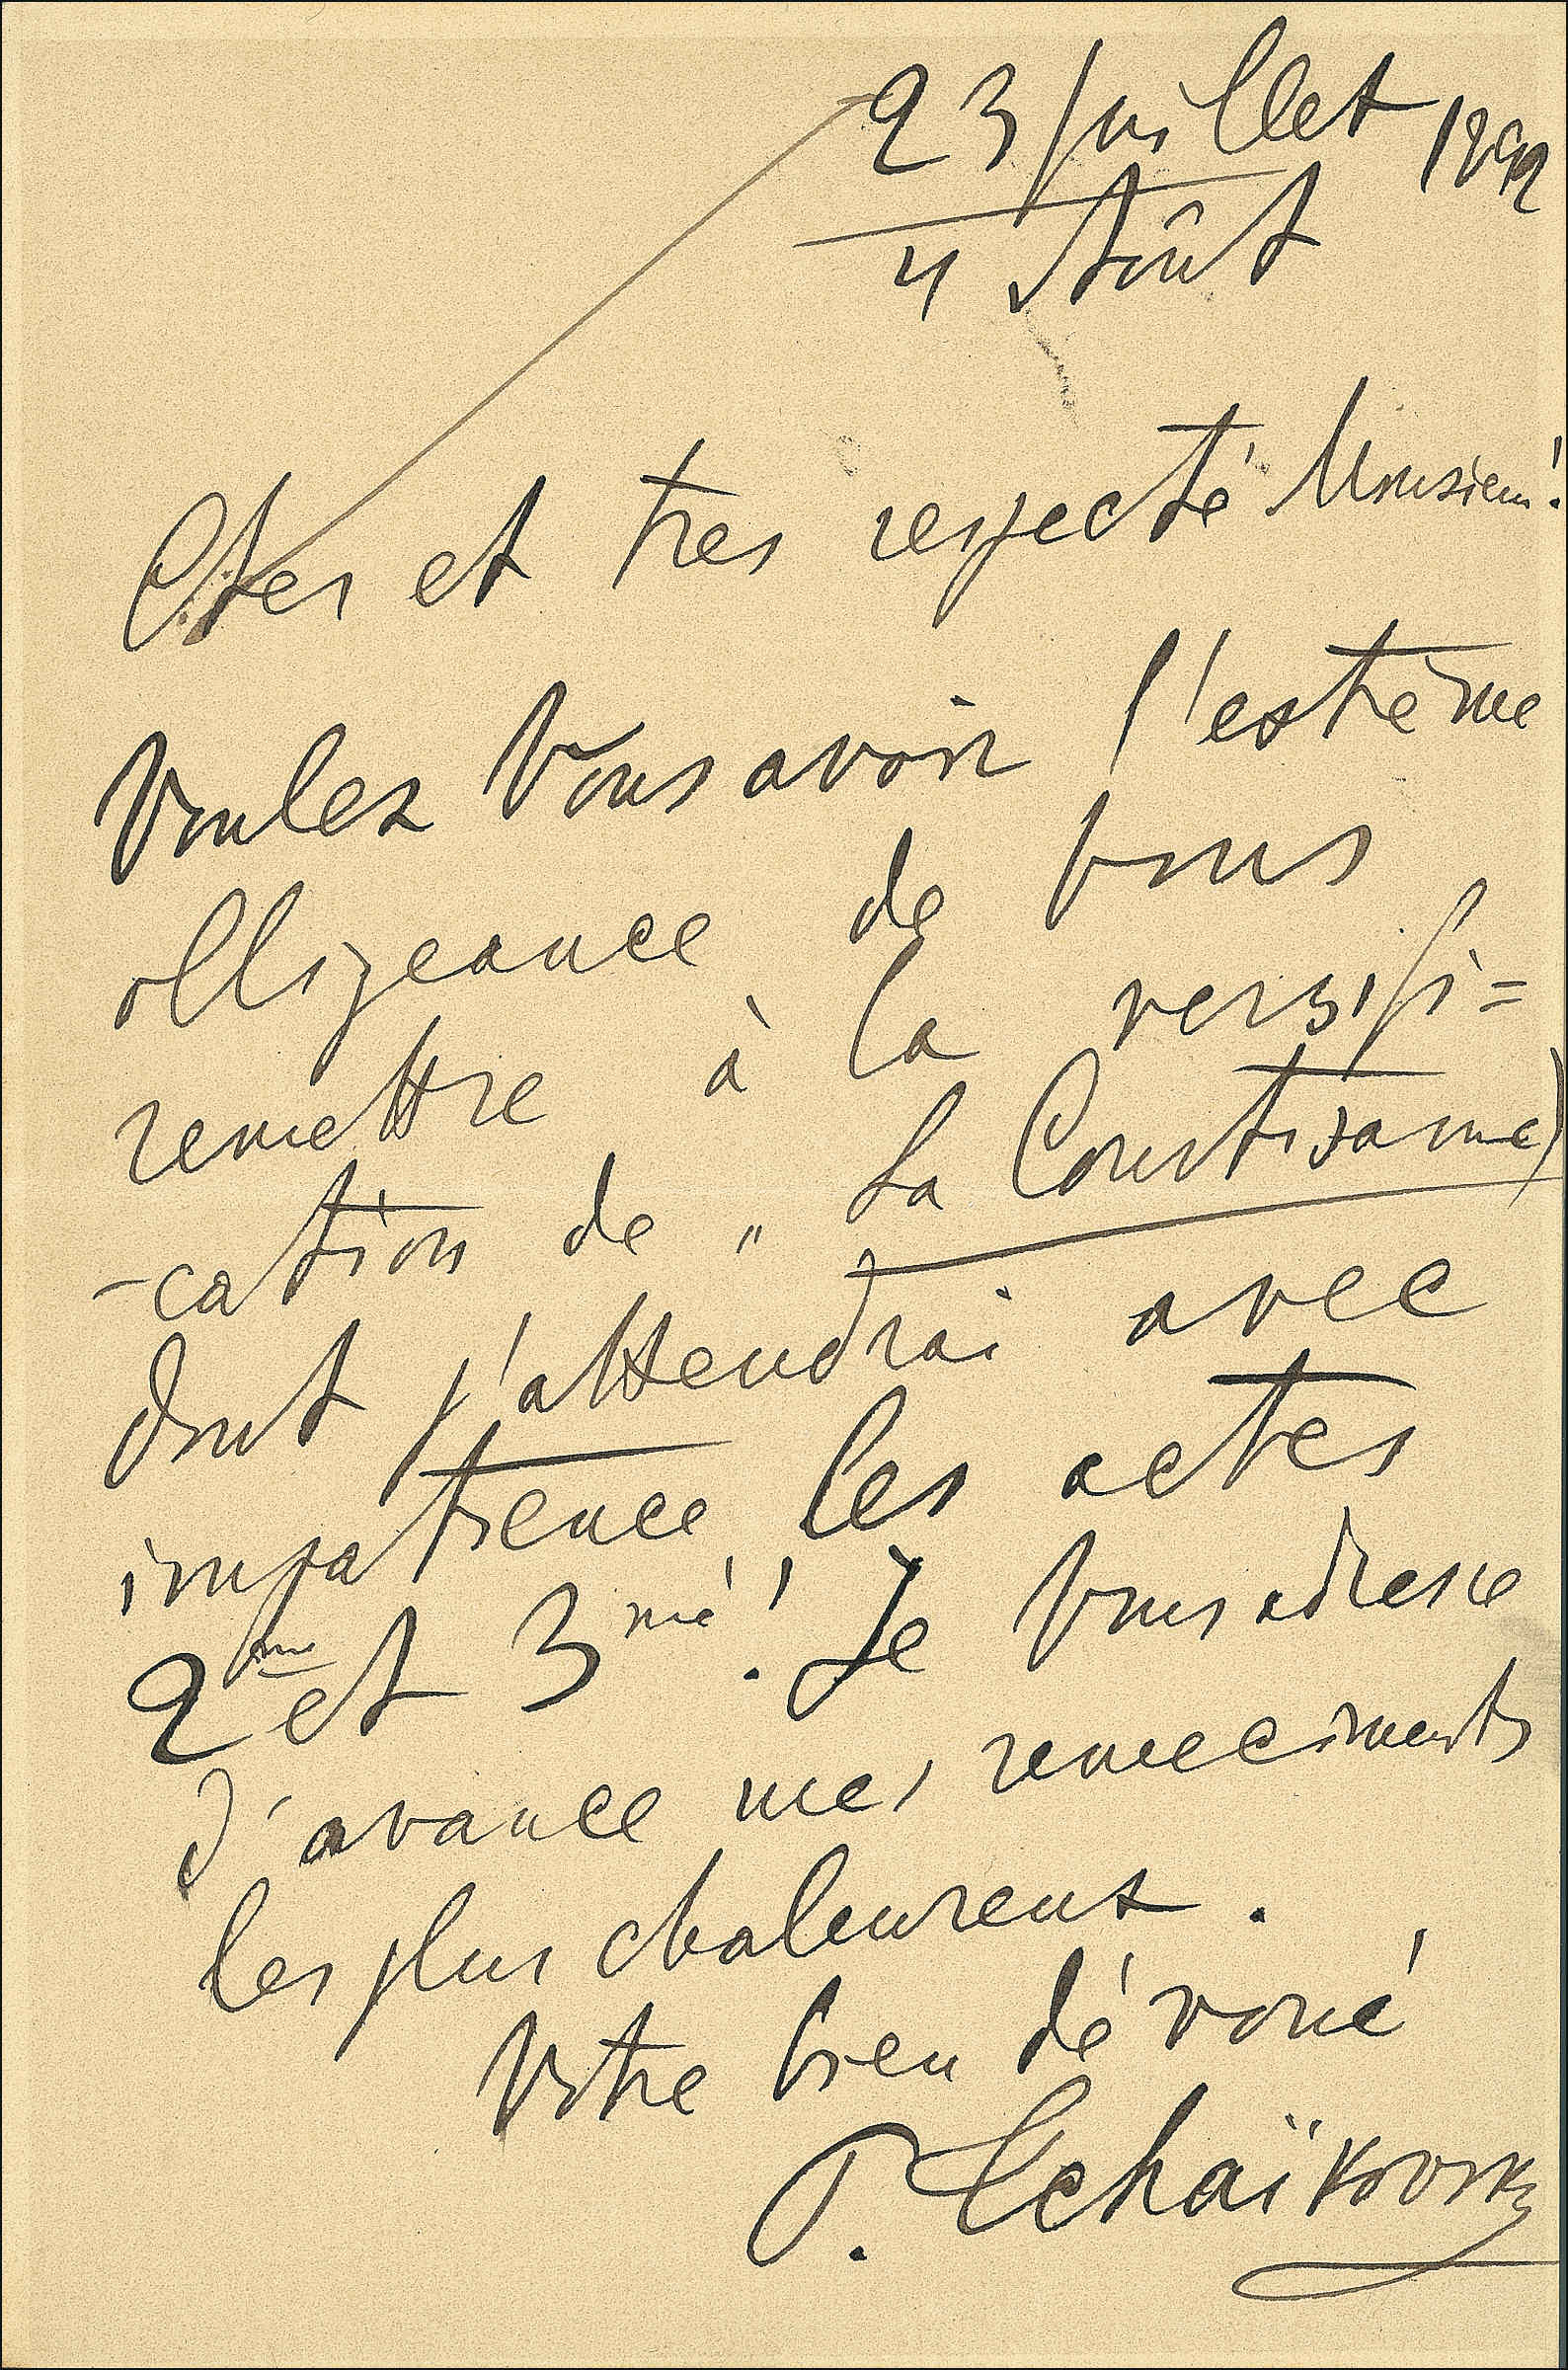 23 juillet 1892
4 Août
Cher et tres respecté Monsieur!
Voulez Vous avoir l'extrème
obligeance de Vous
remettre à la versifi=
-cation de „La Courtisane)
dont j'attendrai avec
impatience les actes
2me et 3me! Je Vous adresse
d'avance mes remerciments
les plus chaleureux.
Votre bien dévoué
P. Tchaïkovsky